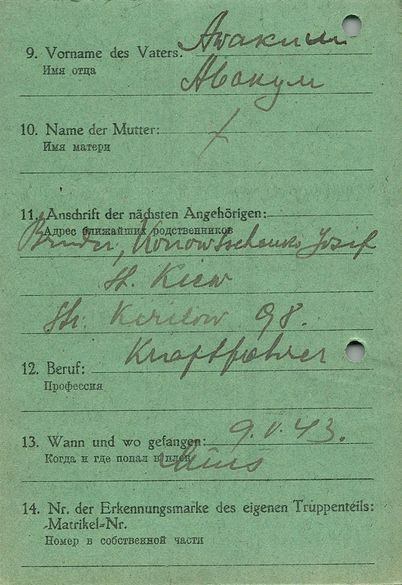 9. Vorname des Vaters: Awakum
Имя отца Авакум
10. Name der Mutter: X
Имя матери
11. Anschrift der nächsten Angehörigen:
Адрес ближайших родственников
Bruder, Josif
St. Kiew
Str. Kirilow 98.
12. Beruf: Kraftfahrer
Профессия
13. Wann und wo gefangen: 9.V.43.
Когда и где попал в плен
14. Nr. der Erkennungsmarke des eigenen Truppenteils:
-Matrikel-Nr.
Номер в собственной части